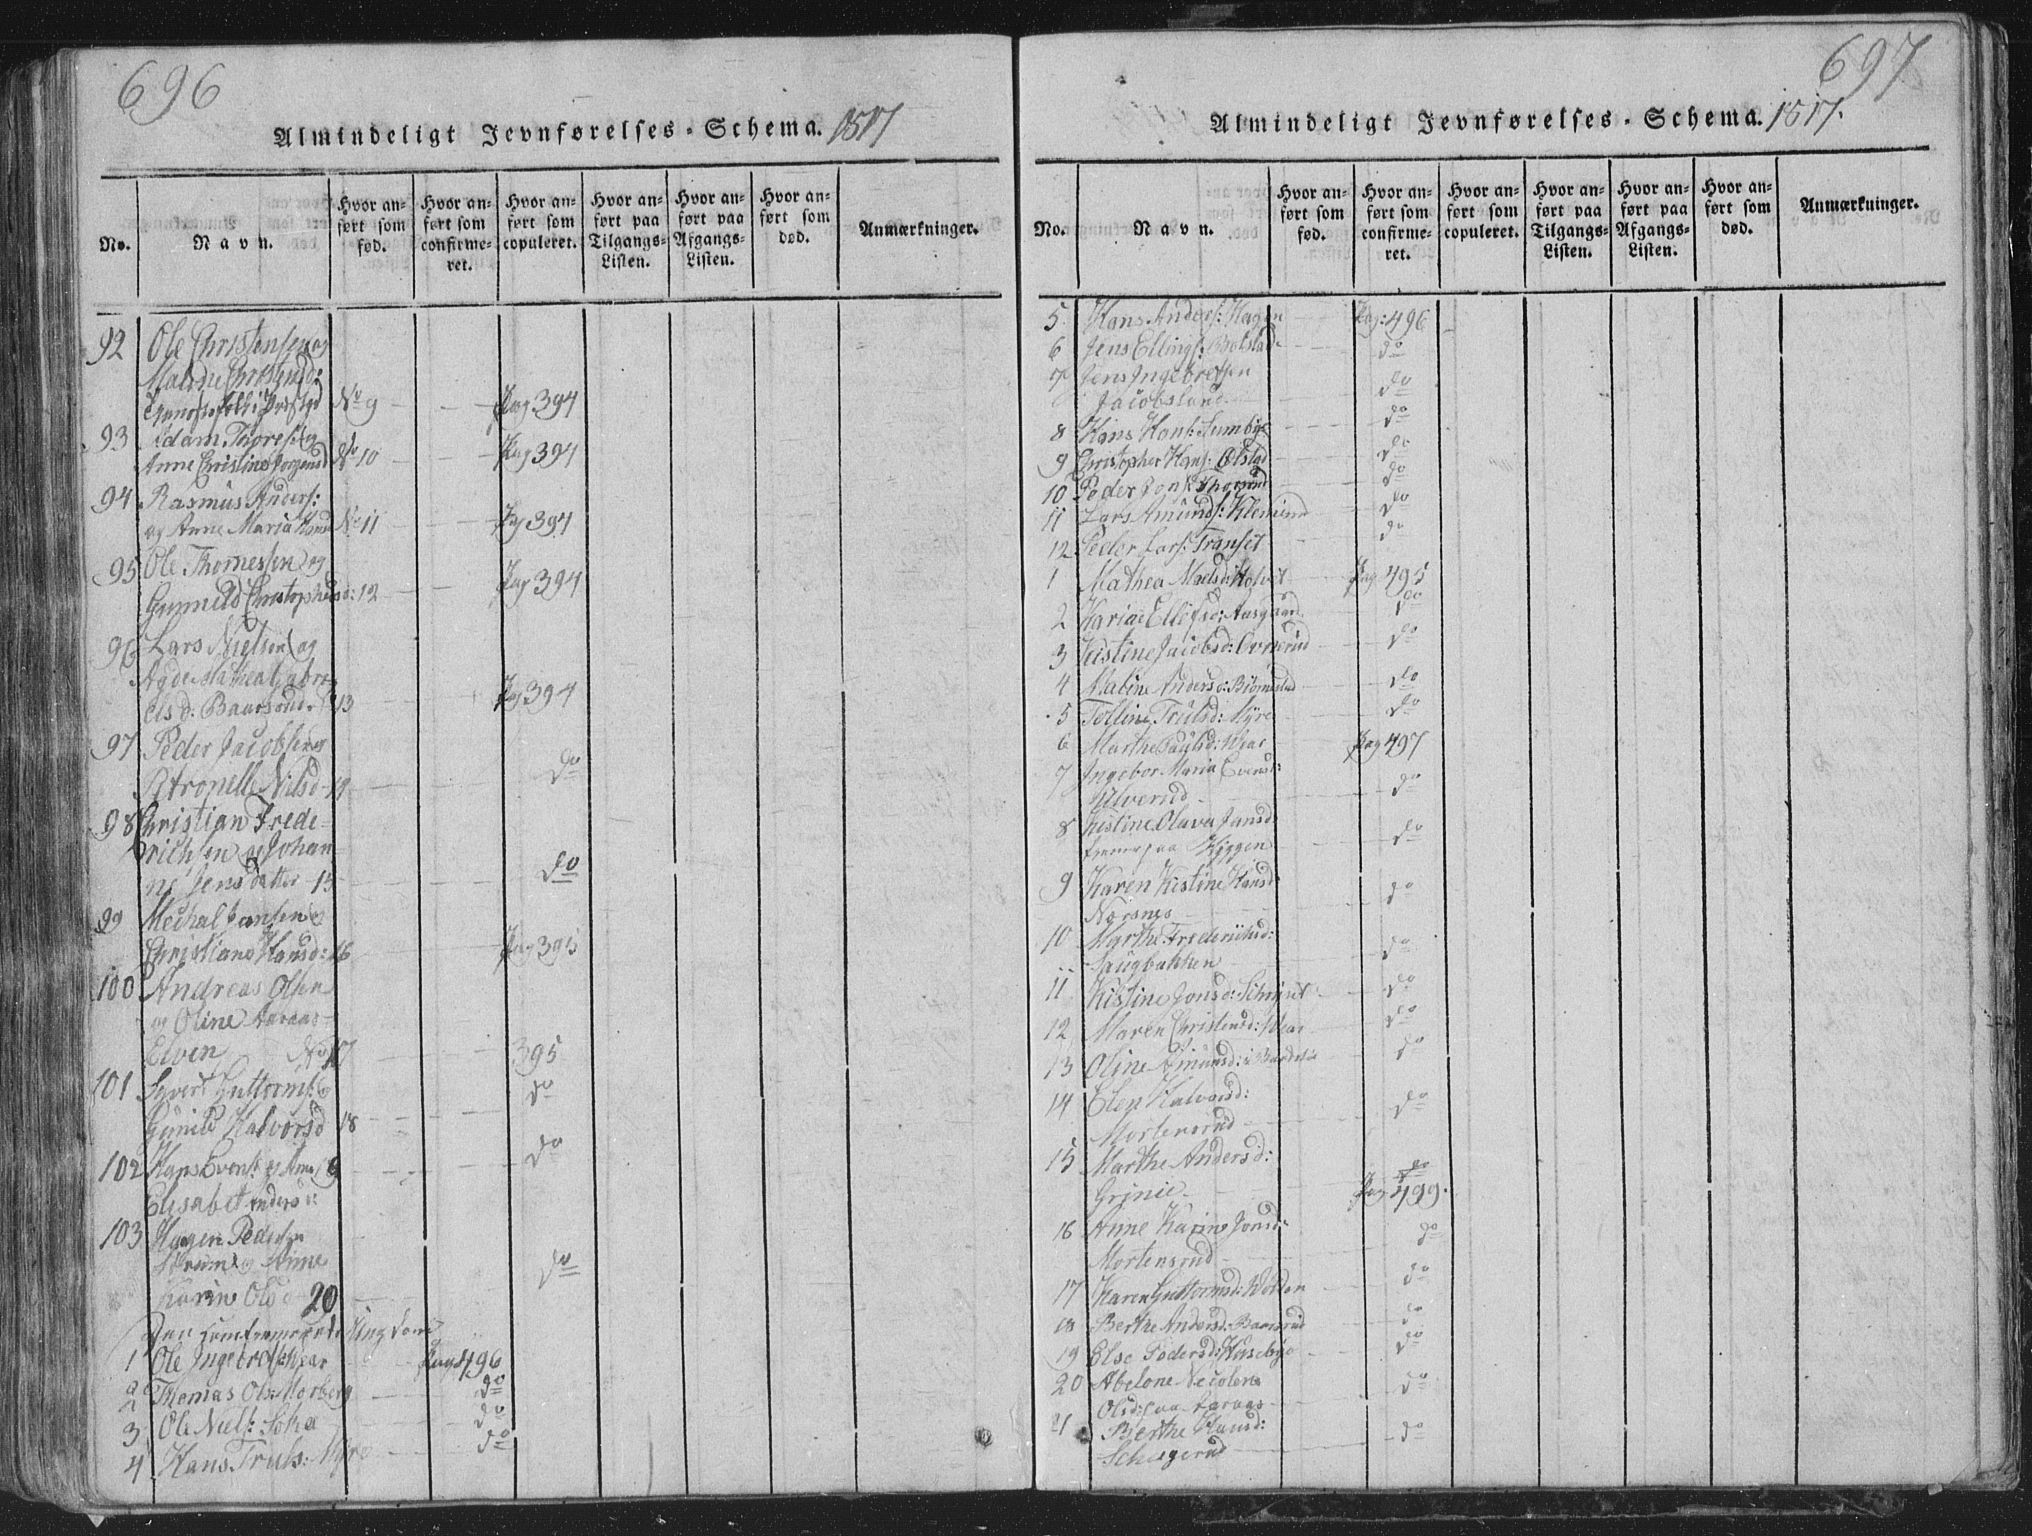 696
Almindeligt Jevnførelses-Schema. 1817
No.
Navn.
Hvor anført som fød.
Hvor anført som confirmeret.
Hvor anført som copuleret.
Hvor anført paa Tilgangs-Listen.
Hvor anført paa Afgangs-Listen.
Hvor anført som død.
Anmærkninger.
92 Ole Christensen og
Malene
No 9 Pag 394
93 Adam Thores: og
Anne Christine Jorgensd No 10 Pag 394
94 Rasmus Anders:
og Anne Maria No 11 Pag 394
95 Ole Thomessen og
Gunnild Christophersd: 12 Pag 394
96 Lars Nielsen og
Mathea
elsd: Baarsrud. 13 Pag 394
97 Peder Jacobsen og
Petronelle Nilsd 14 do
98 Christian Frede-
richsen og Johan-
ne Jensdatter 15 do
99 Mechal Jansen og
Christiane Hansd: 16 Pag 395
100 Andreas Olsen
og Oline Aaraas-
Elven No 17 395
101 Syver Guttorms: og
Gunild Halvorsd 18 do
102 Hans Evens: og Anne 19 do
Elisabet Andersd:
103 Hagen Pedersen
og Anne
Karine Olsd 20 do
1 Ole Ingebrets: Pag 496
2 Thomas Ols: Morberg do
3 Ole Niels: do
4 Hans Truls: Myre do
697
Almindeligt Jevnførelses-Schema. 1817.
No.
Navn.
Hvor anført som fød.
Hvor anført som confirmeret.
Hvor anført som copuleret.
Hvor anført paa Tilgangs-Listen.
Hvor anført paa Afgangs-Listen.
Hvor anført som død.
Anmærkninger.
5 Hans Anders: Hagen Pag: 496
6 Jens Ellings: Bolstad do
7 Jens Ingebretsen
Jacobslund do
8 Hans Hans: Sumbye do
9 Christopher Hans: Ølstad do
10 Peder Jons: Thorrud do
11 Lars Amunds: Klemmerud do
12 Peder Lars: Transet do
1 Mathea Nielsd: Holvet Pag 495
2 Mariae Ellefsd: Aasgaard do
3 Kistine Jacobsd: Overrud do
4 Maline Andersd: Biørnstad do
5 Tolline Trulsd: Myre do
6 Marthe Paulsd: Pag 497
7 Ingebor Maria Evensd:
Ulverud do
8 Kistine Olava Jansd
paa Kjggen do
9 Karen Kistine Hansd
Nærsnes do
10 Marthe Frederichsd:
Haugbakken do
11 Kistine Jonsd: do
12 Maren Christensd: do
13 Oline Amunsd: do
14 Elen Halvorsd:
Mortensrud do
15 Marthe Andersd:
Grinie do
Pag 499.
16 Anne Karine Jonsd:
Mortensrud do
17 Karen Guttormsd: Wolden do
18 Berthe Andersd: Baarsrud do
19 Else Pedersd: Husebye do
20 Abelone Necoline
Olsd: paa Aaraas do
21 Berthe Hansd: do